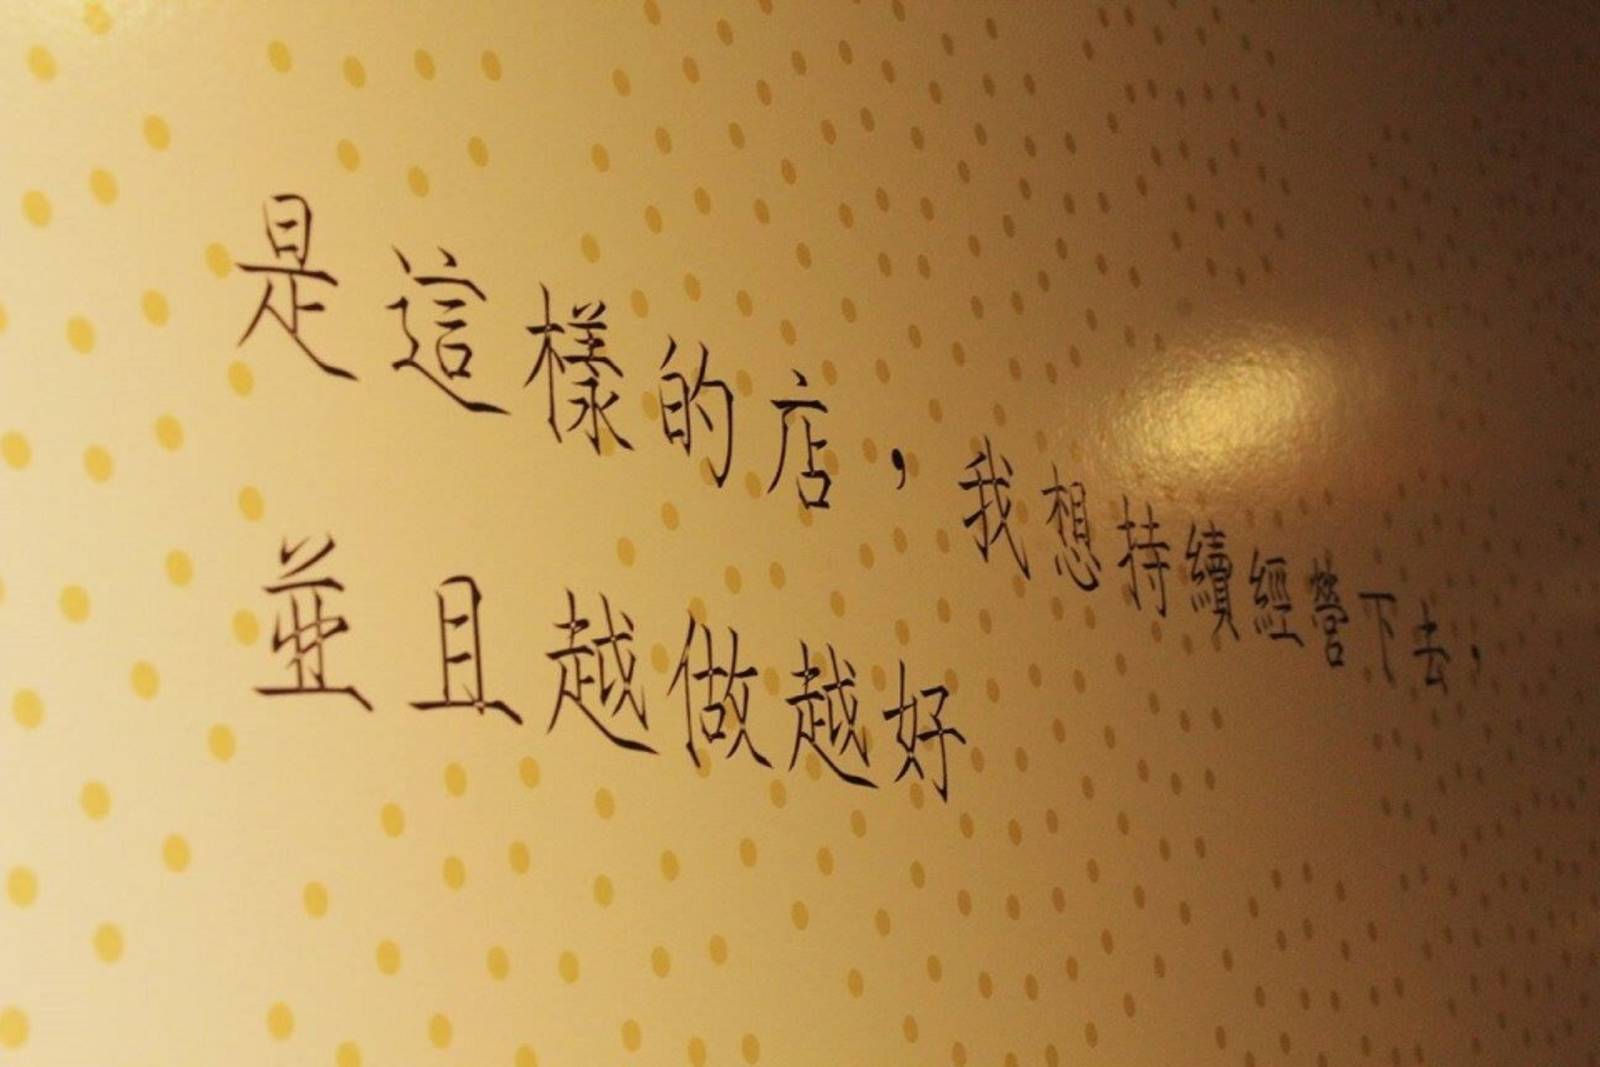 是這樣的店，我想持續經營下去，
並且越做越好